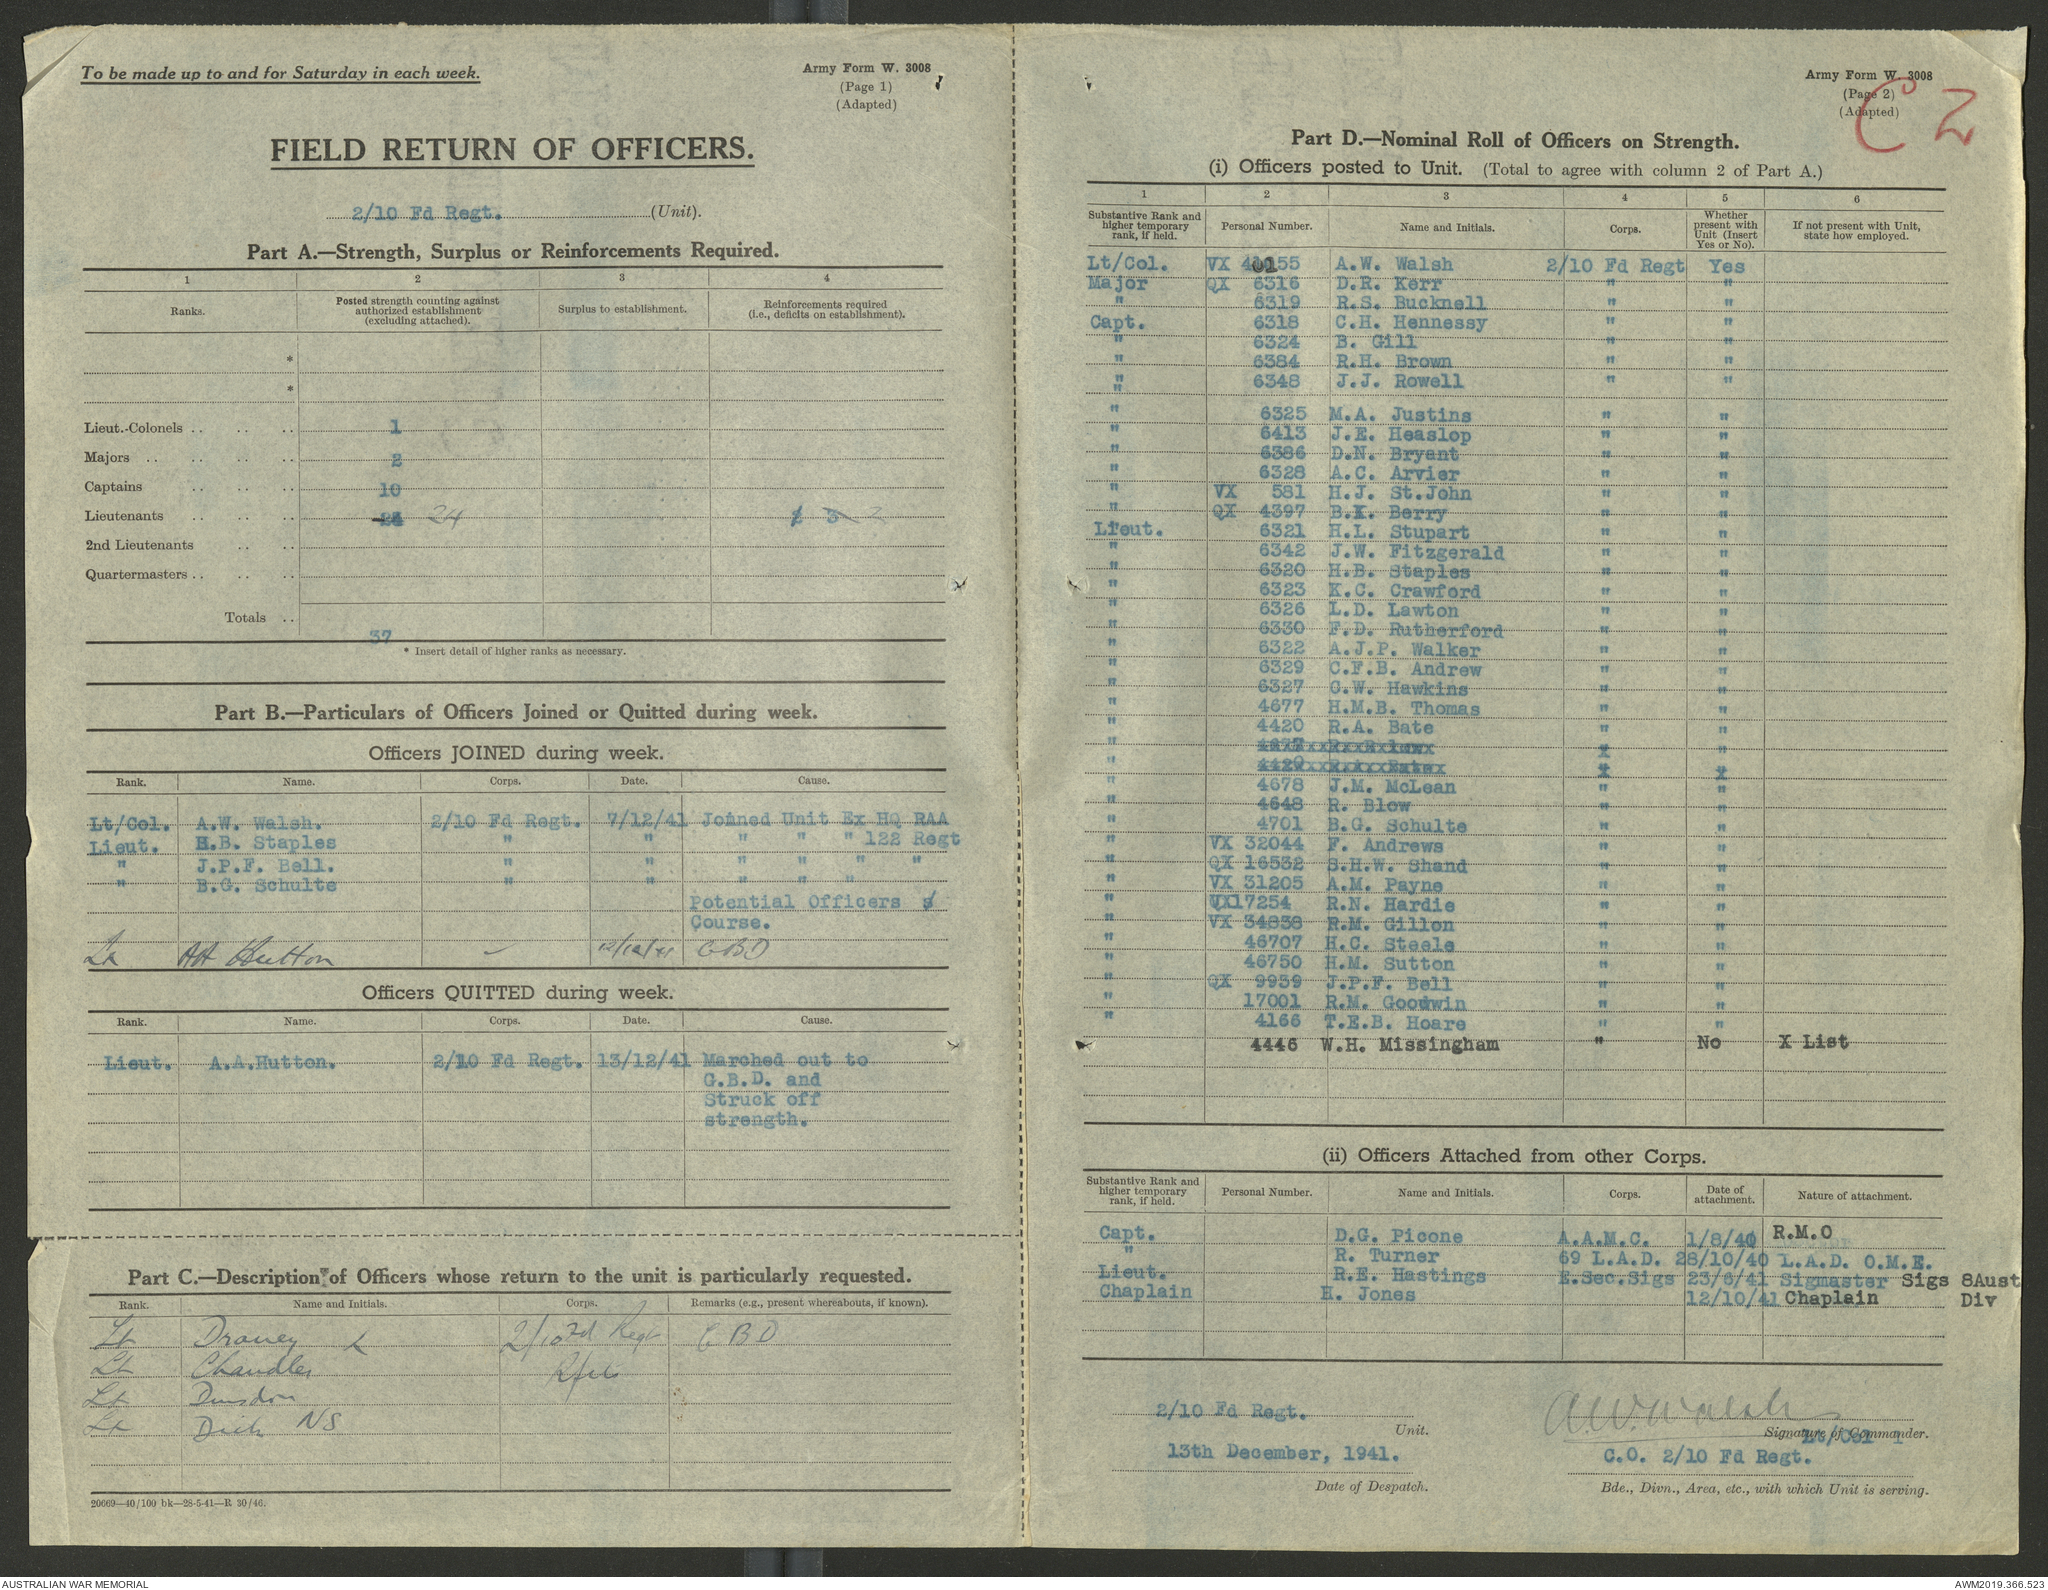 To be made up to and for Saturday in each week.
Army Form W. 3008
(Page 1)
(Adapted)
FIELD RETURN OF OFFICERS.
2/10 Fd Regt. (Unit).
Part A.—Strength, Surplus or Reinforcements Required.
1 2 3 4
Ranks. Posted strength counting against authorized establishment (excluding attached). Surplus to establishment. Reinforcements required (i.e., deficits on establishment).
*
*
Lieut.-Colonels .. .. .. 1
Majors .. .. .. .. 2
Captains .. .. .. 10
Lieutenants .. .. .. 24 2
2nd Lieutenants .. ..
Quartermasters .. .. ..
Totals .. 37
* Insert detail of higher ranks as necessary.
Part B.—Particulars of Officers Joined or Quitted during week.
Officers JOINED during week.
Rank. Name. Corps. Date. Cause.
Lt/Col. A.W. Walsh. 2/10 Fd Regt. 7/12/41 Joined Unit Ex HQ RAA
Lieut. H.B. Staples " " " " " 122 Regt
" J.P.F. Bell. " " " " " "
" B.G. Schulte " " " " "
Potential Officers
Course.
Lt AA Hutton 12/12/41 GBD
Officers QUITTED during week.
Rank. Name. Corps. Date. Cause.
Lieut. A.A.Hutton. 2/10 Fd Regt. 13/12/41 Marched out to
G.B.D. and
Struck off
strength.
Part C.—Description of Officers whose return to the unit is particularly requested.
Rank. Name and Initials. Corps. Remarks (e.g., present whereabouts, if known).
Lt Draney L 2/10 Fd Regt GBD
Lt Chandler R/fts
Lt Dunsdon
Lt Dick NS
20669—40/100 bk—28-5-41—R 30/46.
Army Form W. 3008
(Page 2)
(Adapted)
C 2
Part D.—Nominal Roll of Officers on Strength.
(i) Officers posted to Unit. (Total to agree with column 2 of Part A.)
1 2 3 4 5 6
Substantive Rank and higher temporary rank, if held. Personal Number. Name and Initials. Corps. Whether present with Unit (Insert Yes or No). If not present with Unit, state how employed.
Lt/Col. VX 40155 A.W. Walsh 2/10 Fd Regt Yes
Major QX 6316 D.R. Kerr " "
" 6319 R.S. Bucknell " "
Capt. 6318 C.H. Hennessy " "
" 6324 B. Gill " "
" 6384 R.H. Brown " "
" 6348 J.J. Rowell " "
" 6325 M.A. Justins " "
" 6413 J.E. Heaslop " "
" 6386 D.N. Bryant " "
" 6328 A.C. Arvier " "
" VX 581 H.J. St.John " "
" QX 4397 B.K. Berry " "
Lieut. 6321 H.L. Stupart " "
" 6342 J.W. Fitzgerald " "
" 6320 H.B. Staples " "
" 6323 K.C. Crawford " "
" 6326 L.D. Lawton " "
" 6330 F.D. Rutherford " "
" 6322 A.J.P. Walker " "
" 6329 C.F.B. Andrew " "
" 6327 G.W. Hawkins " "
" 4677 H.M.B. Thomas " "
" 4420 R.A. Bate " "
" 4678 J.M. McLean " "
" 4648 R. Blow " "
" 4701 B.G. Schulte " "
" VX 32044 F. Andrews " "
" QX 16532 S.H.W. Shand " "
" VX 31205 A.M. Payne " "
" 17254 R.N. Hardie " "
" VX 34838 R.M. Gillon " "
" 46707 H.C. Steele " "
" 46750 H.M. Sutton " "
" QX 9939 J.P.F. Bell " "
" 17001 R.M. Goodwin " "
" 4166 T.E.B. Hoare " "
4446 W.H. Missingham " No X List
(ii) Officers Attached from other Corps.
Substantive Rank and higher temporary rank, if held. Personal Number. Name and Initials. Corps. Date of attachment. Nature of attachment.
Capt. D.G. Picone A.A.M.C. 1/8/40 R.M.O
" R. Turner 69 L.A.D. 28/10/40 L.A.D. O.M.E.
Lieut. R.E. Hastings E.Sec.Sigs 23/6/41 Sigmaster Sigs 8Aust
Chaplain H. Jones 12/10/41 Chaplain Div
2/10 Fd Regt. A.W. Walsh
Unit. Signature of Commander.
13th December, 1941. C.O. 2/10 Fd Regt.
Date of Despatch. Bde., Divn., Area, etc., with which Unit is serving.
AUSTRALIAN WAR MEMORIAL AWM2019.366.523